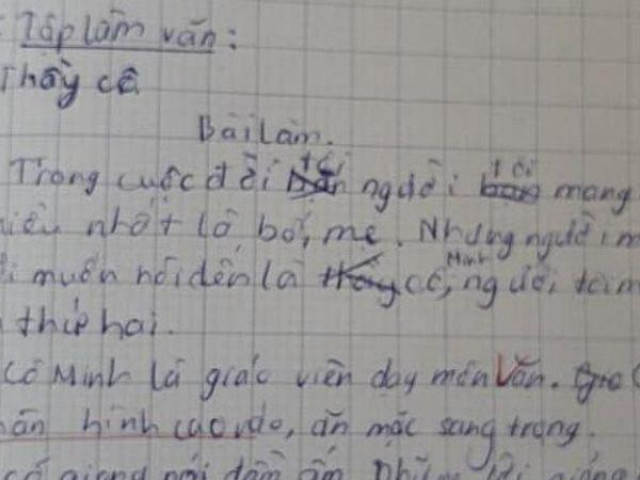 Tập làm văn:
Thầy cô
Bài làm.
Trong cuộc đời tôi người tôi mang
nhất là bố, mẹ. Nhưng người
muốn nói đến là cô Minh, người
thứ hai.
Cô Minh là giáo viên dạy môn Văn.
hình cao, ăn mặc sang trọng.
giọng nói đầm ấm